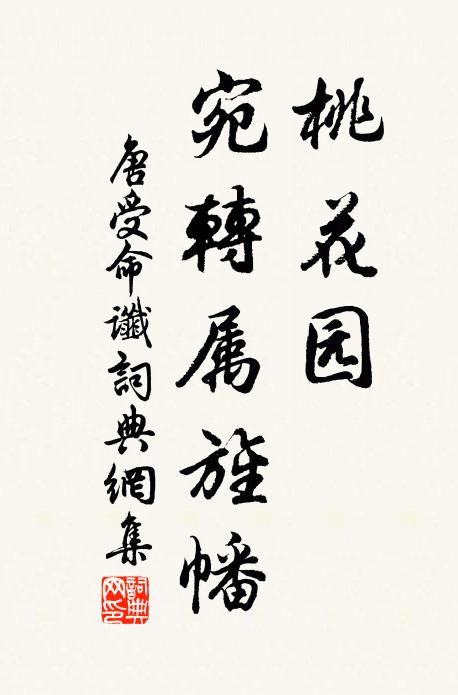 桃花园
宛轉属旌幡
唐受命谶詞典網集
詞典网印